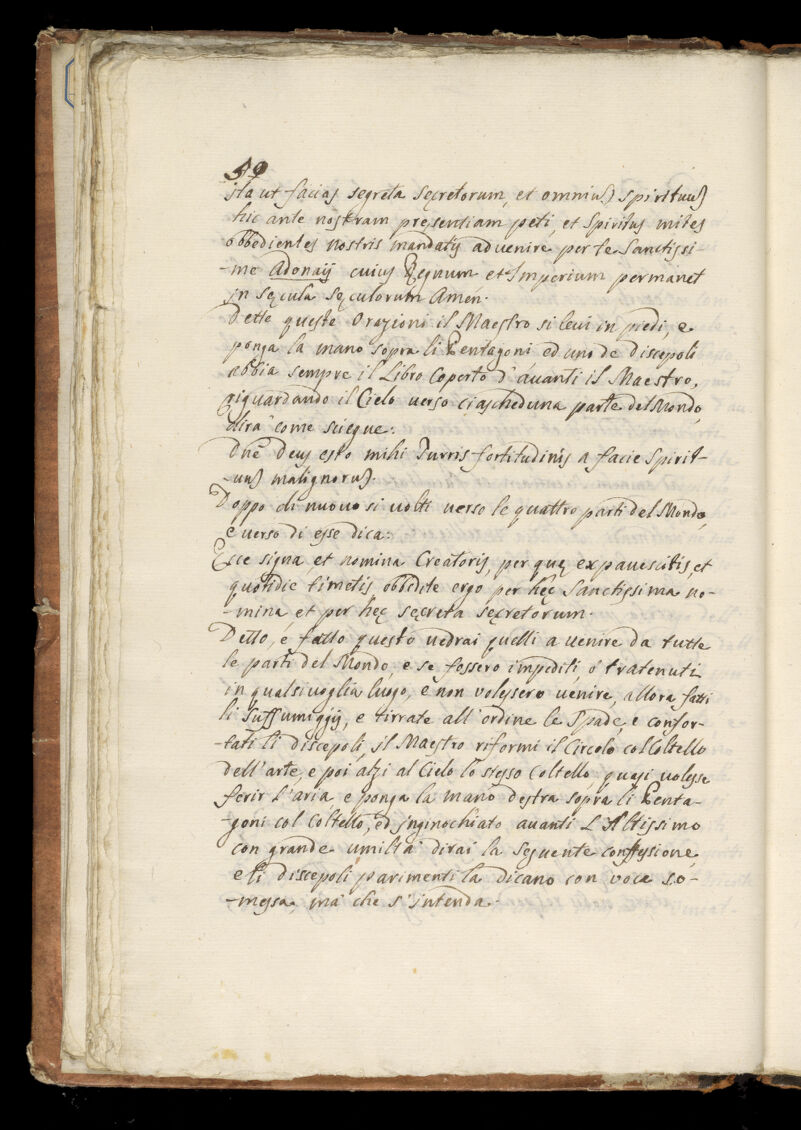 59
ita ut facias segreta secretorum, et omniu) spirituu)
hic ante nostram presentiam peti, et Spiritus mites
obbedientes nostris mandatis advenire per te Sanctissi-
-me Adonaij cuius Regnum et Imperium permanet
in sęcula sęculorum Amen.
Dette queste Orazioni il Maestro si levi in piedi, e
ponga la mano sopra li Pentagoni ed uno de discepoli
abbia sempre il Libro coperto d'avanti il Maestro,
riguardando il Cielo verso ciascheduna parte del Mondo,
dirà come siegue:
Dnē Deus esto mihi Turris fortitudinis a facie Spirit-
-uu) malignoru).
Doppo di nuovo si volti verso le quattro parti del Mondo,
e verso di esse dica:
Ecce signa et nomina Creatoris, per quę expavescitis, et
quotidie timetis, obbedite ergo per hęc Sanctissima no-
-mina, et per hęc sęcreta sęcretorum.
Detto, e fatto questo vedrai quelli a venire da tutte
le parti del Mondo, e se fossero impediti, ò tratenuti
in qualsivoglia luogo, e non volessero venire, allora fatti
li Suffumiggij, e tirrate all'ordine le Spade, e confor-
-tati li discepoli, il Maestro riformi il Circolo col Coltello
dell'arte, e poi alzi al Cielo lo stesso Coltello quasi volesse
ferir l'aria, e ponga la mano destra sopra li Penta-
-goni col Coltello, ed inginochiato avanti l'Altissimo
con grande umiltà dirai la seguente confysione
e li discepoli parimenti la dicano con voce so-
-messa, mà che s'intenda.